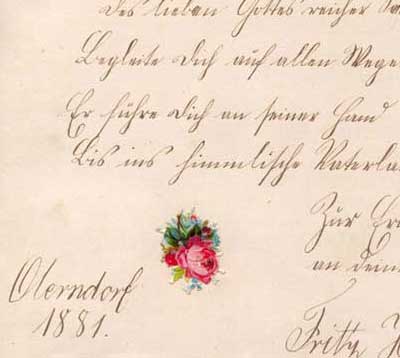 des lieben Gottes reicher
Begleite Dich auf allen Wege
Er führe Dich an seiner Hand
Bis ins himmlische Vaterla
Zur Eri
an dein
Olerndorf
1881.
Fritz